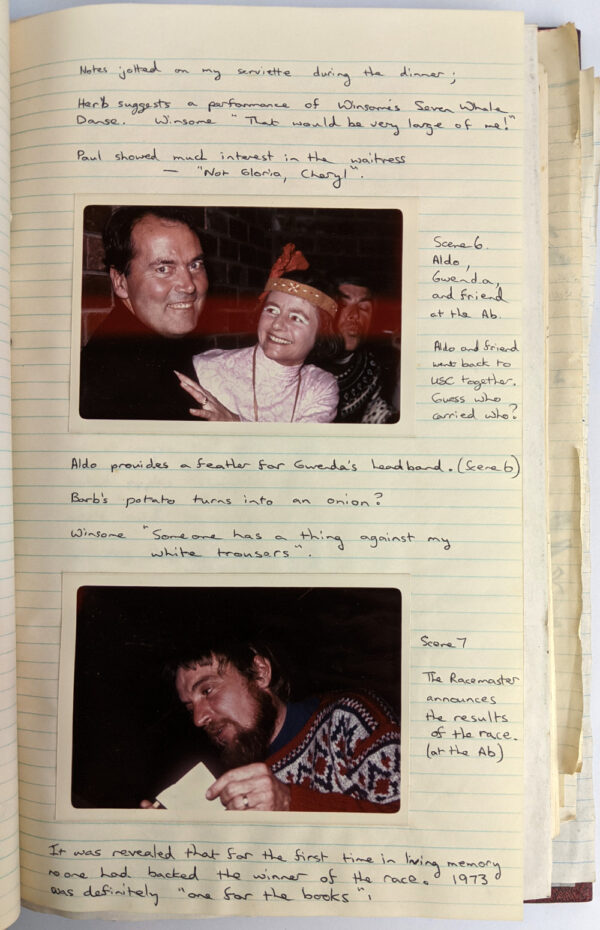 Notes jotted on my serviette during the dinner;
Herb suggests a performance of Winsome's Seven Whale
Danse. Winsome "That would be very large of me!"
Paul showed much interest in the waitress
— "Not Gloria, Cheryl".
Scene 6.
Aldo,
Gwenda,
and friend
at the Ab.
Aldo and friend
went back to
USC together.
Guess who
carried who?
Aldo provides a feather for Gwenda's headband. (Scene 6)
Barb's potato turns into an onion?
Winsome "Someone has a thing against my
white trousers".
Scene 7
The Racemaster
announces
the results
of the race.
(at the Ab)
It was revealed that for the first time in living memory
no one had backed the winner of the race. 1973
was definitely "one for the books".